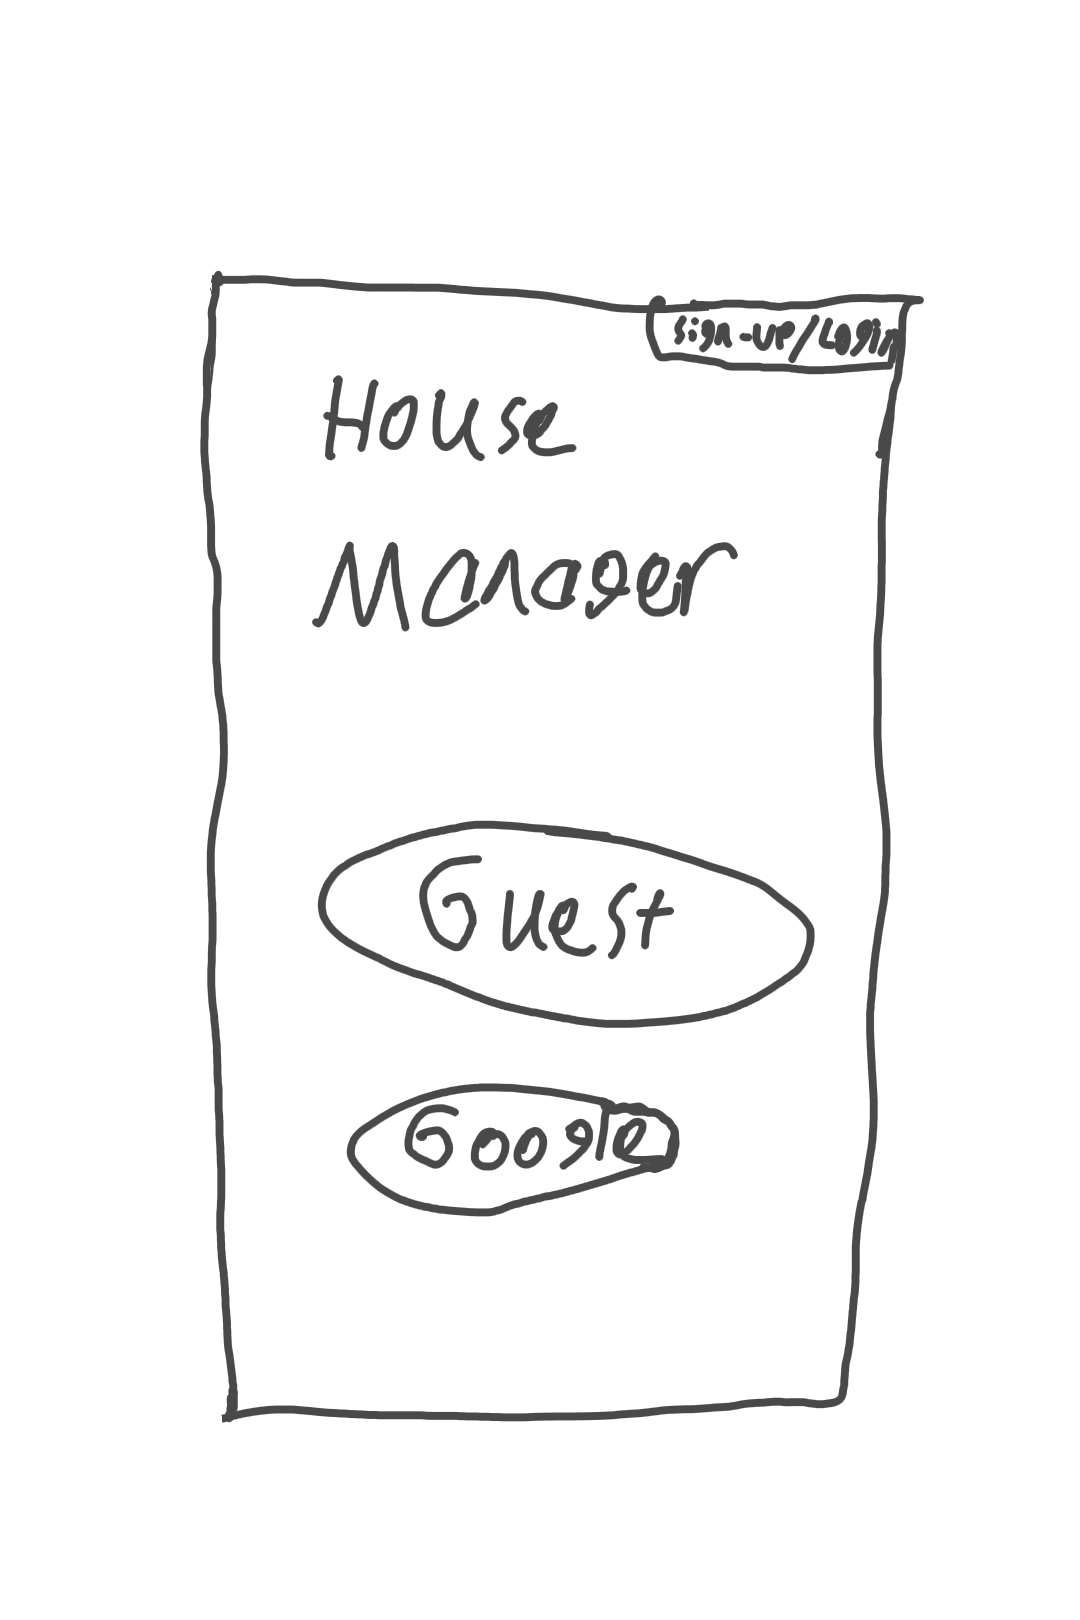 Sign-up/Login
House
Manager
Guest
Google